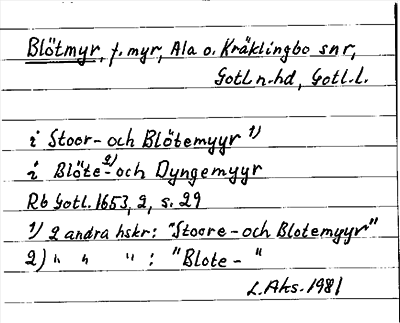 Blötmyr, f. myr, Ala o. Kräklingbo snr,
Gotl. n. hd, Gotl. l.
i Stoor- och Blötemyyr 1)
i Blöte- 2) och Dyngemyyr
Rb Gotl. 1653, 2, s. 29
1) 2 andra hskr: "Stoore- och Blotemyyr"
2) " " " : "Blote- "
L. Aks. 1981